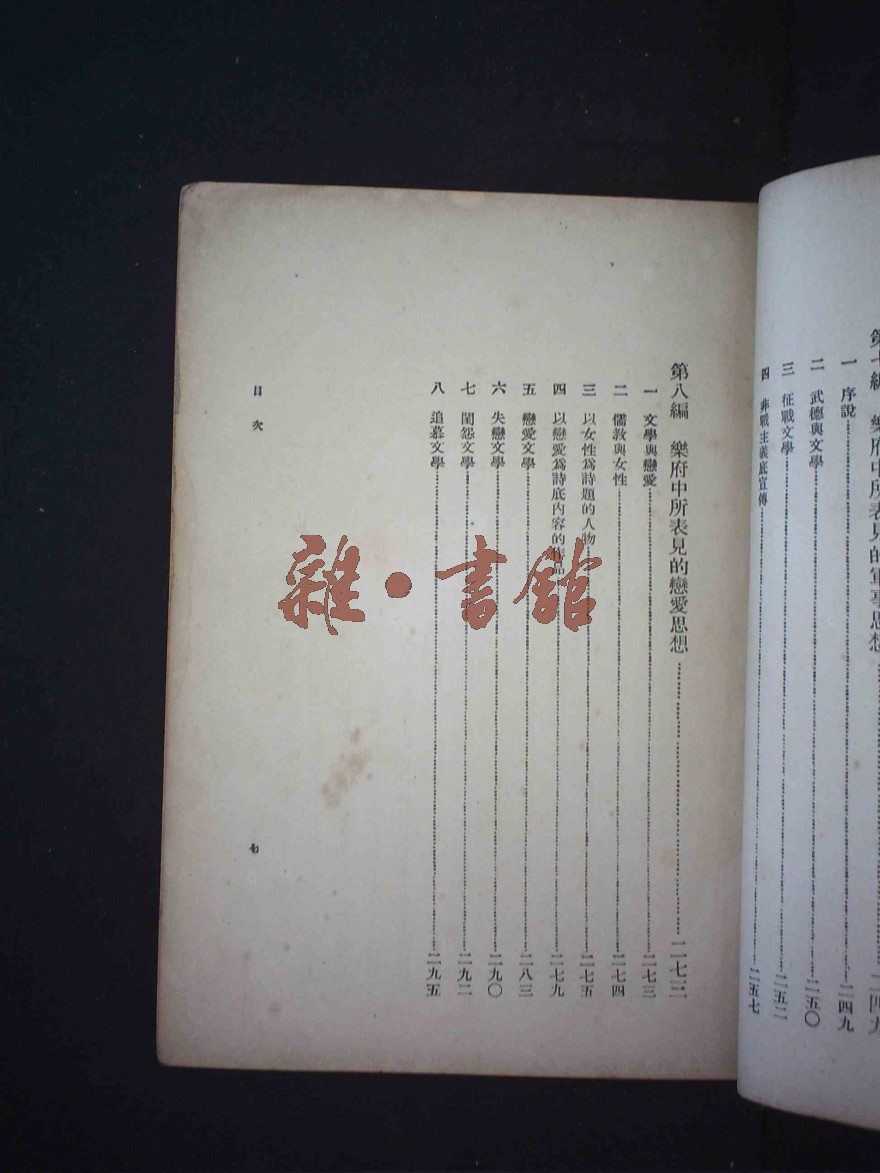 第七編 樂府中所表見的軍事思想 二四九
一 序說 二四九
二 武德與文學 二五〇
三 征戰文學 二五二
四 非戰主義底宣傳 二五七
第八編 樂府中所表見的戀愛思想 二七三
一 文學與戀愛 二七三
二 儒教與女性 二七四
三 以女性爲詩題的人物 二七五
四 以戀愛爲詩底內容的作品 二七九
五 戀愛文學 二八三
六 失戀文學 二九〇
七 閨怨文學 二九二
八 追慕文學 二九五
目次
七
雜·書館